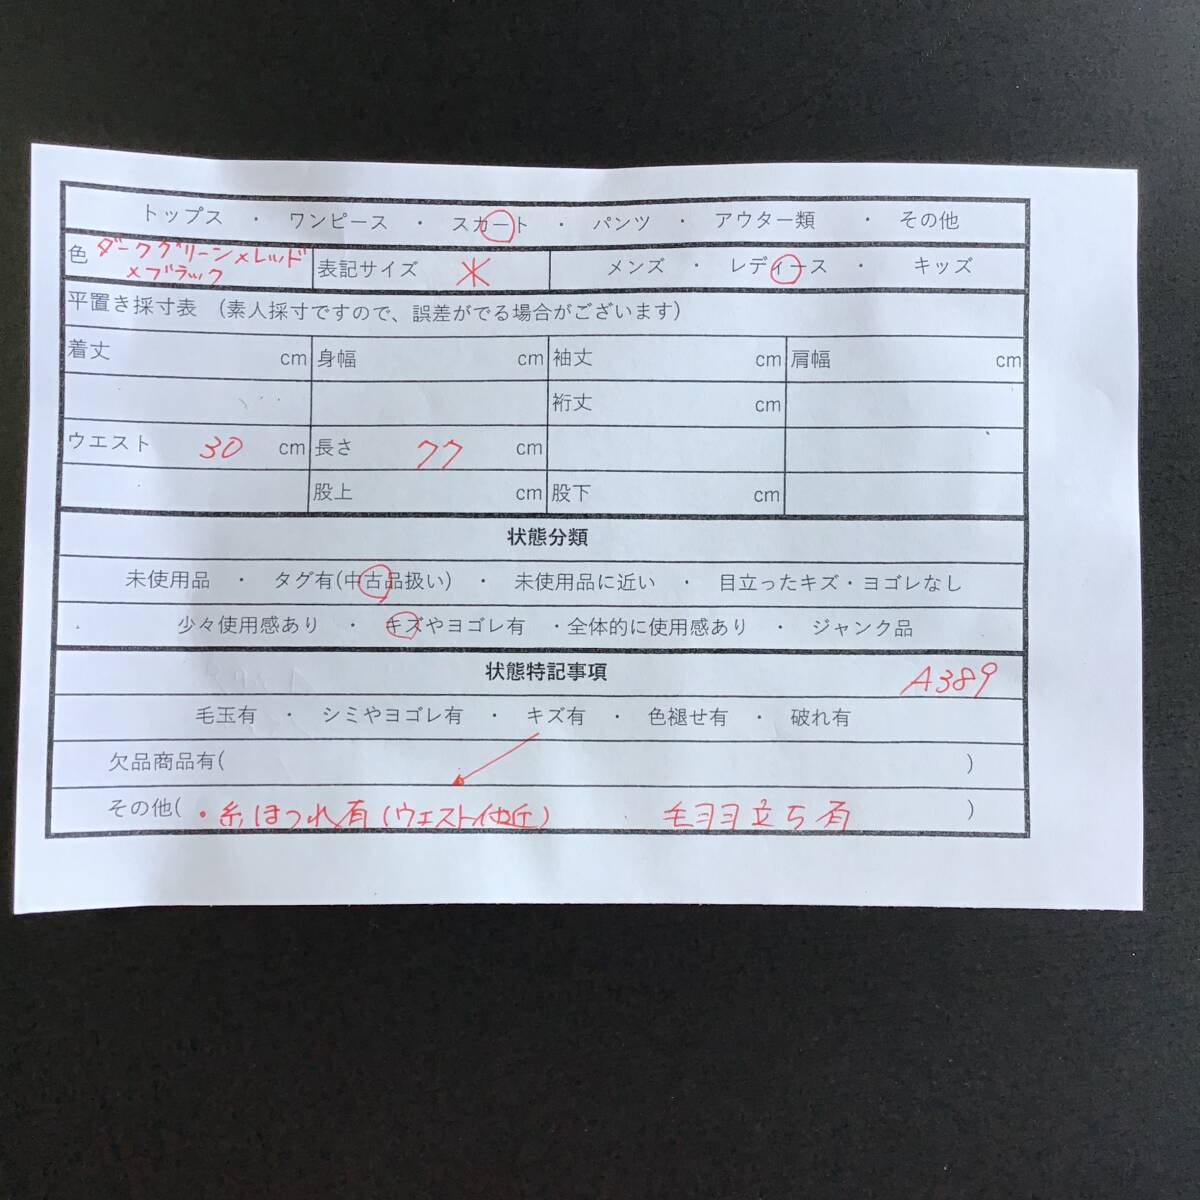 トップス ・ ワンピース ・ スカート ・ パンツ ・ アウター類 ・ その他
色 ダークグリーン×レッド×ブラック 表記サイズ メンズ ・ レディース ・ キッズ
平置き採寸表 (素人採寸ですので、誤差がでる場合がございます)
着丈 cm 身幅 cm 袖丈 cm 肩幅 cm
裄丈 cm
ウエスト 30 cm 長さ 77 cm
股上 cm 股下 cm
状態分類
未使用品 ・ タグ有(中古品扱い) ・ 未使用品に近い ・ 目立ったキズ・ヨゴレなし
少々使用感あり ・ キズやヨゴレ有 ・全体的に使用感あり ・ ジャンク品
状態特記事項 A389
毛玉有 ・ シミやヨゴレ有 ・ キズ有 ・ 色褪せ有 ・ 破れ有
欠品商品有( )
その他( ・糸ほつれ有(ウエスト付近) 毛羽立ち有 )